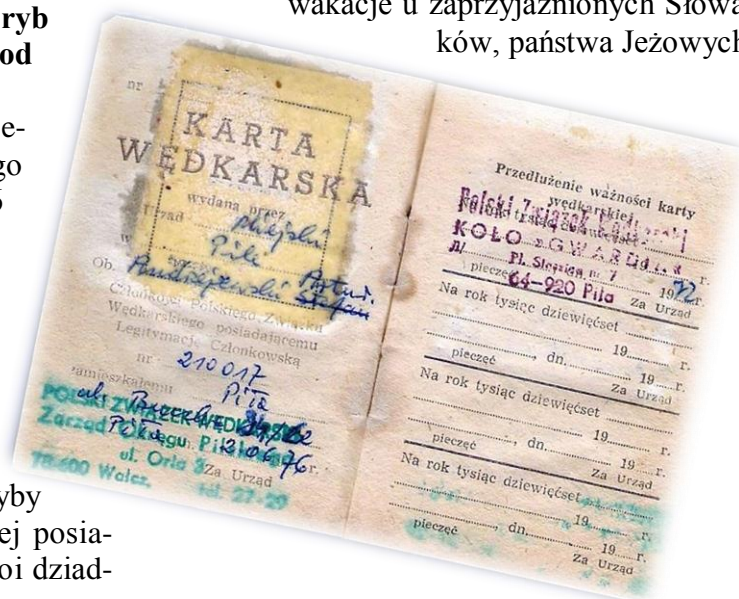 ryb
od
e-
go
wakacje u zaprzyjaźnionych Słowa
ków, państwa Jeżowych
nr
KARTA
WĘDKARSKA
wydana przez
Urząd Miejski
w Pile
Ob. Andrzejewski Artur.
Członkowi Polskiego Związku
Wędkarskiego posiadającemu
Legitymację Członkowską
nr 210017
zamieszkałemu Piła
ul.
POLSKI ZWIĄZEK WĘDKARSKI
Zarząd Okręgu
ul. Orla 3 Za Urząd
78-600 Wałcz, tel. 27-29
Przedłużenie ważności karty
wędkarskiej
Polski Związek Wędkarski
KOŁO
Pl. Staszica nr 7
64-920 Piła
pieczęć 19 r.
Za Urząd
Na rok tysiąc dziewięćset
19 r.
pieczęć, dn. 19 r.
Za Urząd
Na rok tysiąc dziewięćset
19 r.
pieczęć, dn. 19 r.
Za Urząd
Na rok tysiąc dziewięćset
19 r.
pieczęć, dn. 19 r.
Za Urząd
yby
ej posia-
oi dziad-